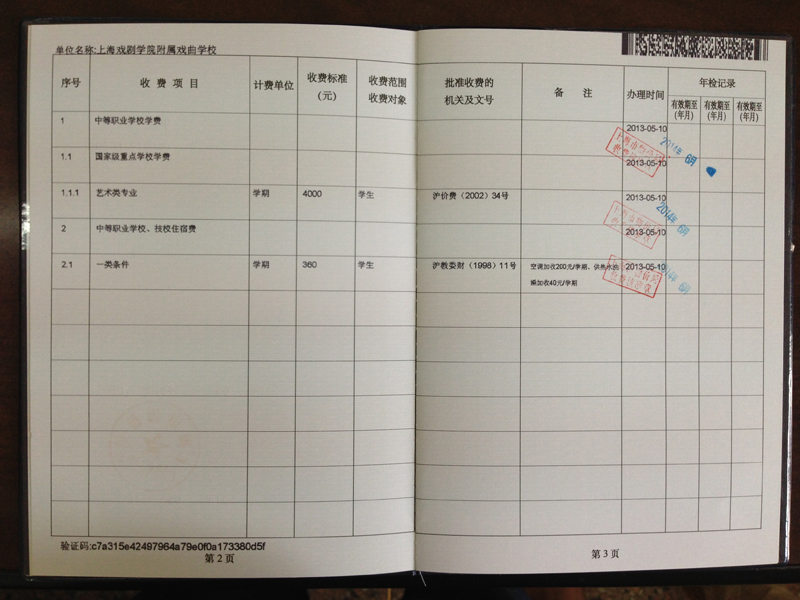 单位名称:上海戏剧学院附属戏曲学校
序号 收费项目 计费单位 收费标准(元) 收费范围收费对象 批准收费的机关及文号 备注 办理时间 年检记录
有效期至(年月) 有效期至(年月) 有效期至(年月)
1 中等职业学校学费 2013-05-10
1.1 国家级重点学校学费 2013-05-10
1.1.1 艺术类专业 学期 4000 学生 沪价费（2002）34号 2013-05-10
2 中等职业学校、技校住宿费 2013-05-10
2.1 一类条件 学期 360 学生 沪教委财（1998）11号 空调加收200元/学期、供热水洗澡加收40元/学期 2013-05-10
2014年6月
2014年6月
验证码:c7a315e42497964a79e0f0a173380d5f
第2页
第3页